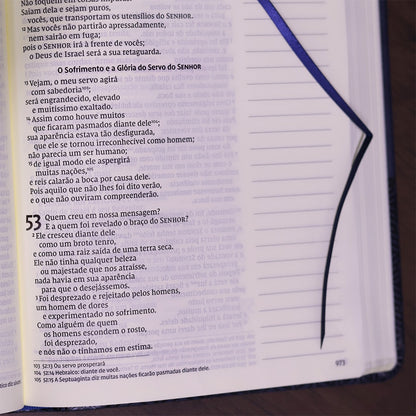 Não toquem em coisas impuras!
Saiam dela e sejam puros,
vocês, que transportam os utensílios do SENHOR.
12 Mas vocês não partirão apressadamente,
nem sairão em fuga;
pois o SENHOR irá à frente de vocês;
o Deus de Israel será a sua retaguarda.
O Sofrimento e a Glória do Servo do SENHOR
13 Vejam, o meu servo agirá
com sabedoria103;
será engrandecido, elevado
e muitíssimo exaltado.
14 Assim como houve muitos
que ficaram pasmados diante dele104;
sua aparência estava tão desfigurada,
que ele se tornou irreconhecível como homem;
não parecia um ser humano;
15 de igual modo ele aspergirá
muitas nações,105
e reis calarão a boca por causa dele.
Pois aquilo que não lhes foi dito verão,
e o que não ouviram compreenderão.
53 Quem creu em nossa mensagem?
E a quem foi revelado o braço do SENHOR?
2 Ele cresceu diante dele
como um broto tenro,
e como uma raiz saída de uma terra seca.
Ele não tinha qualquer beleza
ou majestade que nos atraísse,
nada havia em sua aparência
para que o desejássemos.
3 Foi desprezado e rejeitado pelos homens,
um homem de dores
e experimentado no sofrimento.
Como alguém de quem
os homens escondem o rosto,
foi desprezado,
e nós não o tínhamos em estima.
103 52.13 Ou servo prosperará
104 52.14 Hebraico: diante de você.
105 52.15 A Septuaginta diz muitas nações ficarão pasmadas diante dele.
973